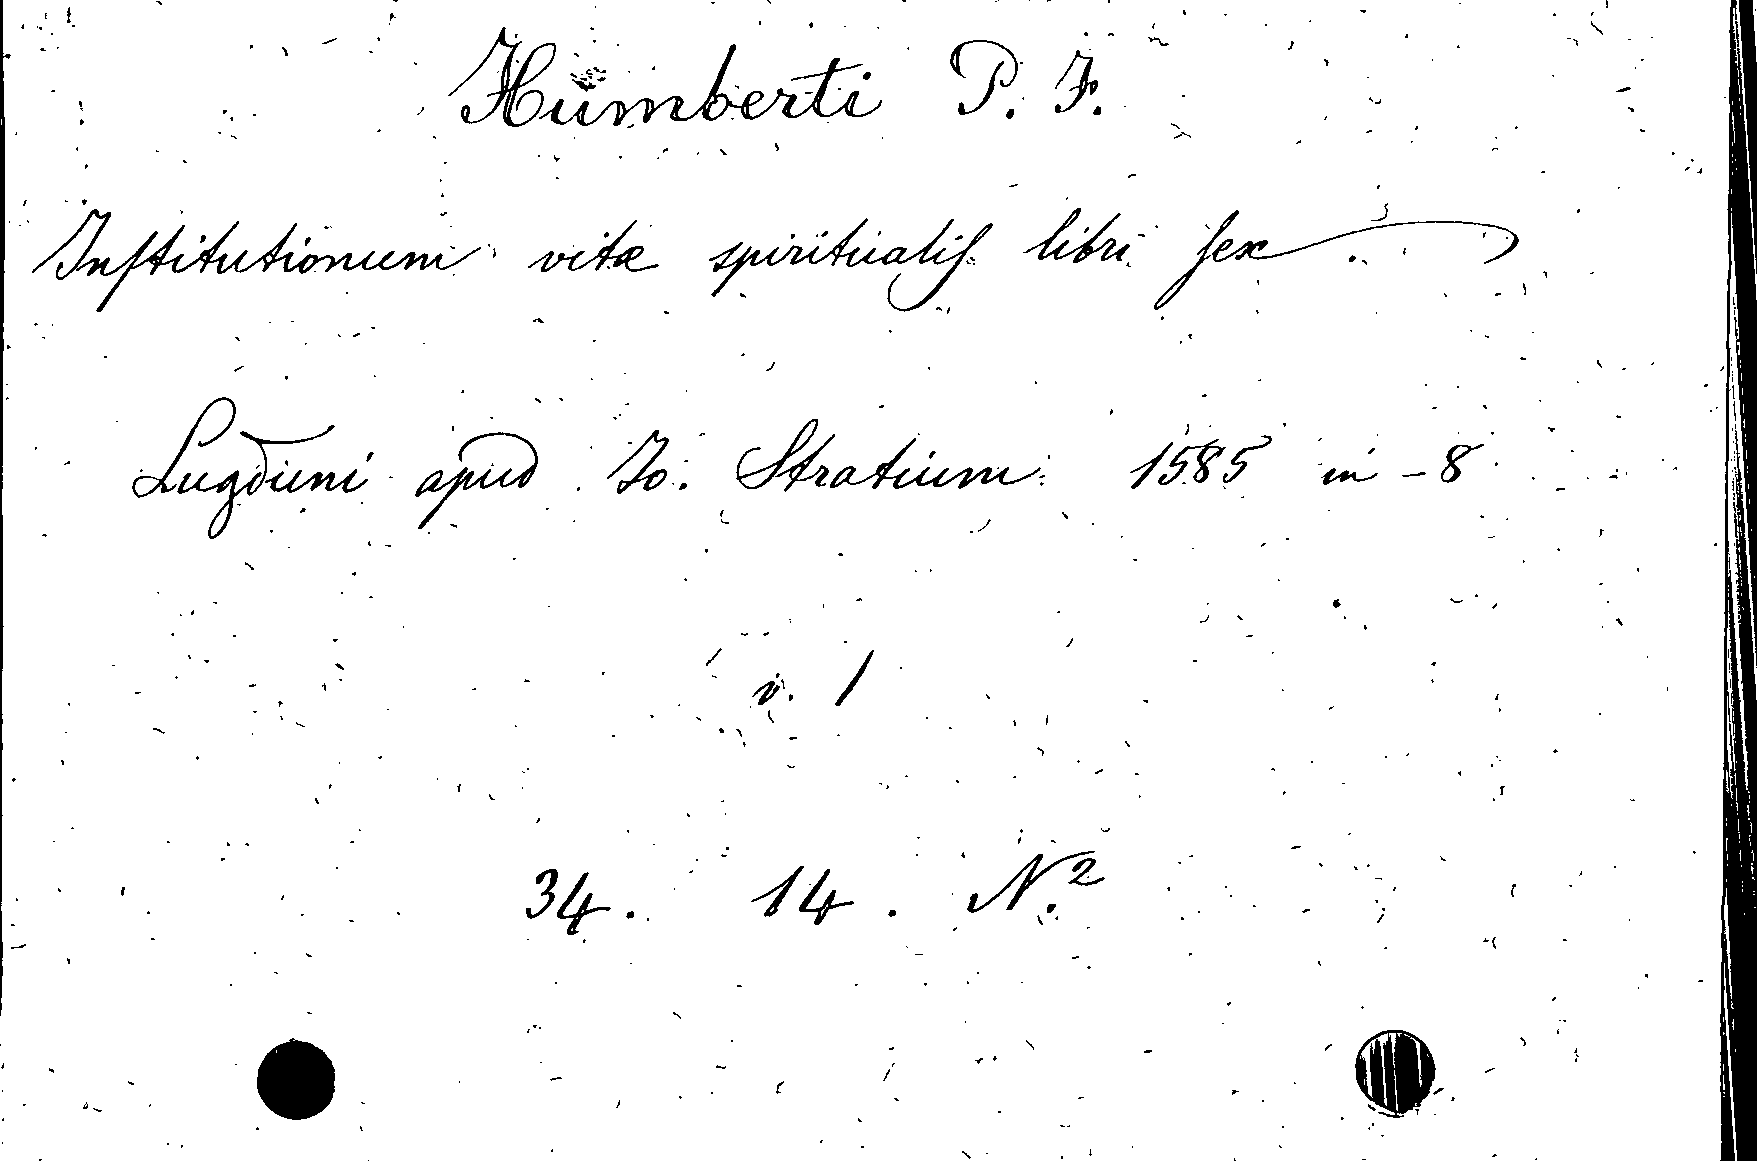 Humberti P. F.
Inſtitutionum vitæ spiritualiſ libri ſex.
Lugduni apud Io. Stratium 1585 in - 8
v. 1
34. 14. N.2